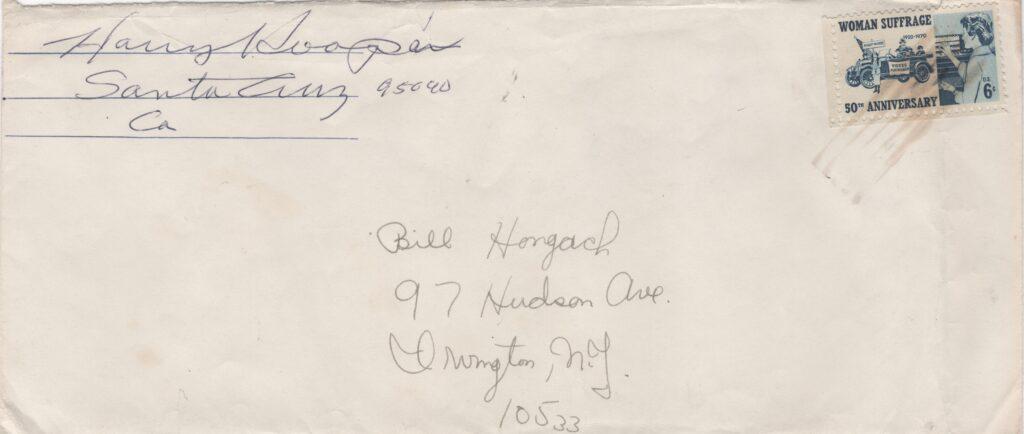 Harry Hooper
Santa Cruz 95040
Ca
WOMAN SUFFRAGE
1920-1970
50TH ANNIVERSARY
U.S.
6¢
Bill Hongach
97 Hudson Ave.
Irvington, N.Y.
10533